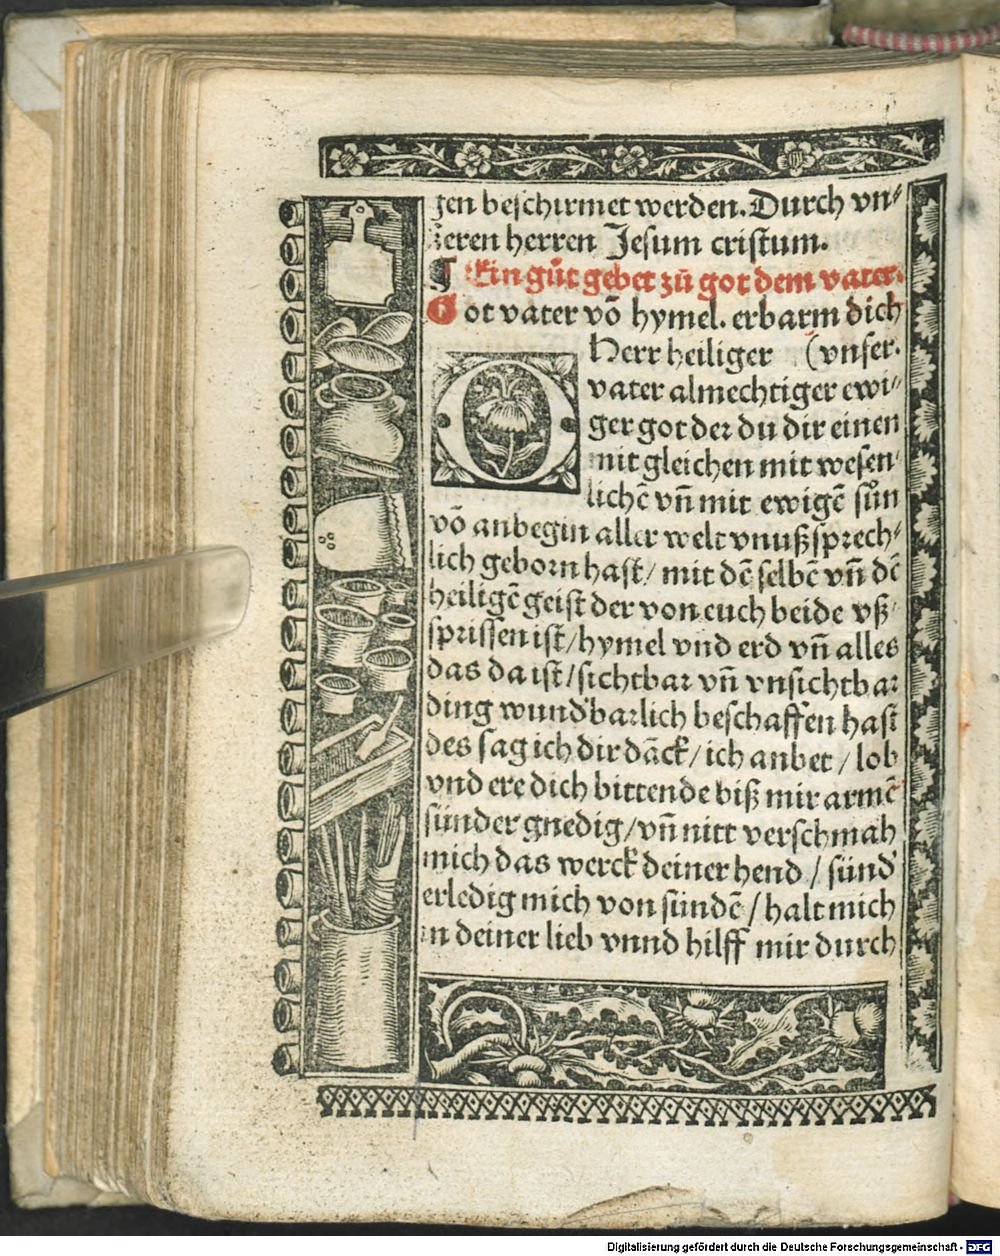 gen beschirmet werden. Durch vn⸗
seren herren Jesum cristum.
¶ Ein gůt gebet zů got dem vater.
Got vater vō hymel. erbarm dich
O Herr heiliger (vnser.
vater almechtiger ewi⸗
ger got der du dir einen
mit gleichen mit wesen⸗
lichē vn̄ mit ewigē sůn
vō anbegin aller welt vnußsprech⸗
lich geborn hast / mit dē selbē vn̄ dē
heiligē geist der von euch beide vß⸗
sprissen ist / hymel vnd erd vn̄ alles
das da ist / sichtbar vn̄ vnsichtbar
ding wund'barlich beschaffen hast
des sag ich dir dāck / ich anbet / lob
vnd ere dich bittende biß mir armē
sünder gnedig / vn̄ nitt verschmah
mich das werck deiner hend / sünd'
erledig mich von sündē / halt mich
in deiner lieb vnnd hilff mir durch
Digitalisierung gefördert durch die Deutsche Forschungsgemeinschaft - DFG